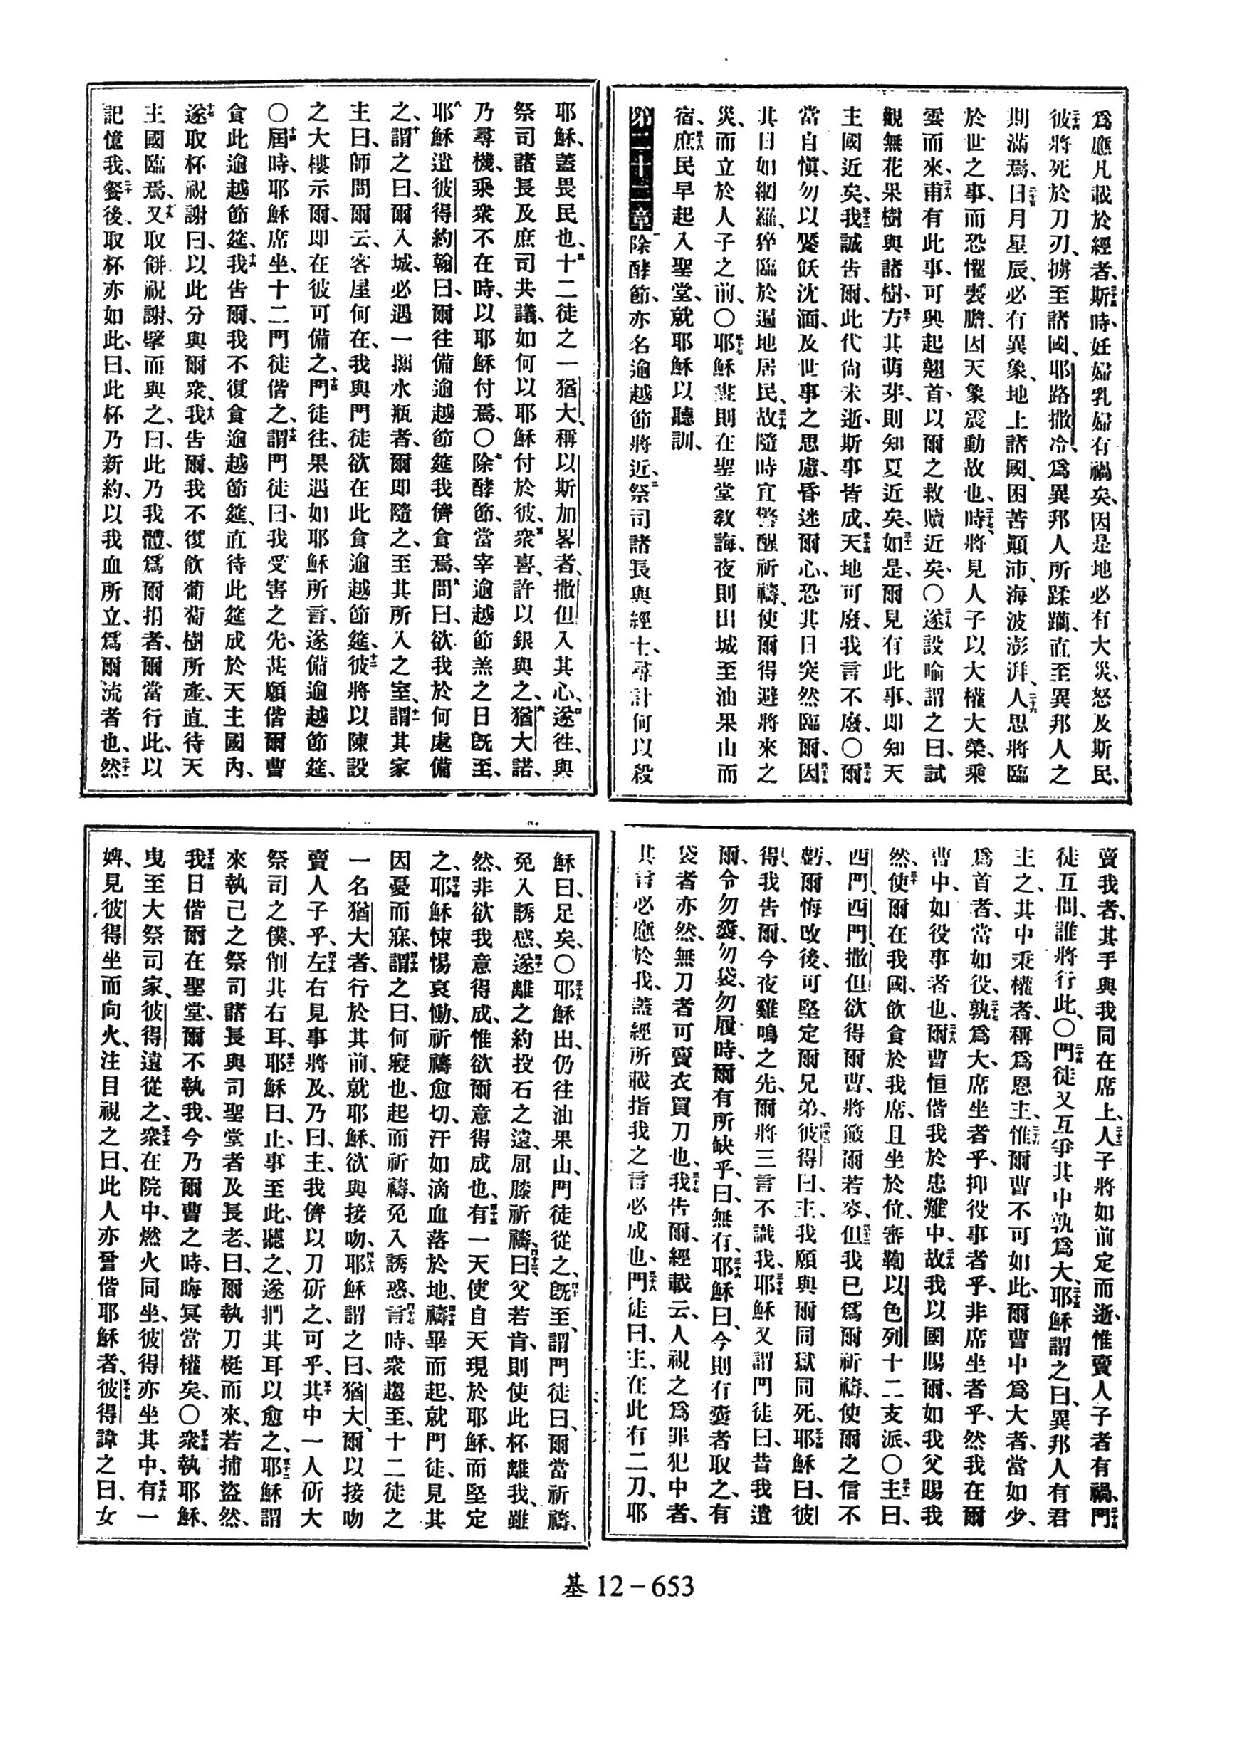 爲應凡載於經者、斯時、妊婦乳婦有禍矣、因是地必有大災、怒及斯民、
彼將死於刀刃、擄至諸國、耶路撒冷爲異邦人所蹂躪、直至異邦人之
期滿焉、日月星辰、必有異象、地上諸國、困苦顚沛、海波澎湃、人思將臨
於世之事、而恐懼喪膽、因天象震動故也、時將見人子以大權大榮、乘
雲而來、甫有此事、可興起翹首、以爾之救贖近矣、〇遂設喻謂之曰、試
觀無花果樹與諸樹、方其萌芽、則知夏近矣、如是、爾見有此事、即知天
主國近矣、我誠告爾、此代尙未逝、斯事皆成、天地可廢、我言不廢、〇爾
當自愼、勿以饕飫沈湎、及世事之思慮、昏迷爾心、恐其日突然臨爾、因
其日如網羅、猝臨於遍地居民、故隨時宜警醒祈禱、使爾得避將來之
災、而立於人子之前、〇耶穌晝則在聖堂敎誨、夜則出城至油果山而
宿、庶民早起入聖堂、就耶穌以聽訓、
第二十二章 除酵節、亦名逾越節將近、祭司諸長與經士、尋計何以殺
耶穌、蓋畏民也、十二徒之一猶大、稱以斯加畧者、撒但入其心、遂往、與
祭司諸長及庶司共議、如何以耶穌付於彼、衆喜、許以銀與之、猶大諾、
乃尋機、乘衆不在時、以耶穌付焉、〇除酵節、當宰逾越節羔之日旣至、
耶穌遣彼得約翰曰、爾往備逾越節筵、我儕食焉、問曰、欲我於何處備
之、謂之曰、爾入城、必遇一攜水瓶者、爾即隨之、至其所入之室、謂其家
主曰、師問爾云、客屋何在、我與門徒欲在此食逾越節筵、彼將以陳設
之大樓示爾、即在彼可備之、門徒往、果遇如耶穌所言、遂備逾越節筵、
〇屆時、耶穌席坐、十二門徒偕之、謂門徒曰、我受害之先、甚願偕爾曹
食此逾越節筵、我告爾、我不復食逾越節筵、直待此筵成於天主國內、
遂取杯祝謝曰、以此分與爾衆、我告爾、我不復飮葡萄樹所產、直待天
主國臨焉、又取餅祝謝、擘而與之、曰、此乃我體、爲爾捐者、爾當行此、以
記憶我、餐後、取杯亦如此、曰、此杯乃新約、以我血所立、爲爾流者也、然
賣我者、其手與我同在席上、人子將如前定而逝、惟賣人子者有禍、門
徒互問、誰將行此、〇門徒又互爭其中孰爲大、耶穌謂之曰、異邦人有君
主之、其中秉權者、稱爲恩主、惟爾曹不可如此、爾曹中爲大者、當如少、
爲首者、當如役、孰爲大、席坐者乎、抑役事者乎、非席坐者乎、然我在爾
曹中、如役事者也、爾曹恒偕我於患難中、故我以國賜爾、如我父賜我
然、使爾在我國、飮食於我席、且坐於位、審鞫以色列十二支派、〇主曰、
西門、西門、撒但欲得爾曹、將簸爾若麥、但我已爲爾祈禱、使爾之信不
虧、爾悔改後、可堅定爾兄弟、彼得曰、主、我願與爾同獄同死、耶穌曰、彼
得、我告爾、今夜雞鳴之先、爾將三言不識我、耶穌又謂門徒曰、昔我遣
爾、令勿囊、勿袋、勿履時、爾有所缺乎、曰、無有、耶穌曰、今則有囊者取之、有
袋者亦然、無刀者可賣衣買刀也、我告爾、經載云、人視之爲罪犯中者、
其言必應於我、蓋經所載指我之言必成也、門徒曰、主、在此有二刀、耶
穌曰、足矣、〇耶穌出、仍往油果山、門徒從之、旣至、謂門徒曰、爾當祈禱、
免入誘惑、遂離之約投石之遠、屈膝祈禱、曰、父若肯、則使此杯離我、雖
然、非欲我意得成、惟欲爾意得成也、有一天使自天現於耶穌、而堅定
之、耶穌悚惕哀慟、祈禱愈切、汗如滴血落於地、禱畢而起、就門徒、見其
因憂而寐、謂之曰、何寢也、起而祈禱、免入誘惑、言時、衆趨至、十二徒之
一名猶大者、行於其前、就耶穌、欲與接吻、耶穌謂之曰、猶大、爾以接吻
賣人子乎、左右見事將及、乃曰、主、我儕以刀斫之、可乎、其中一人斫大
祭司之僕、削其右耳、耶穌曰、止、事至此、聽之、遂捫其耳以愈之、耶穌謂
來執己之祭司諸長、與司聖堂者、及長老曰、爾執刀梃而來、若捕盜然、
我日偕爾在聖堂、爾不執我、今乃爾曹之時、晦冥當權矣、〇衆執耶穌、
曳至大祭司家、彼得遠從之、衆在院中、燃火同坐、彼得亦坐其中、有一
婢、見彼得坐而向火、注目視之曰、此人亦嘗偕耶穌者、彼得諱之曰、女
基 12－653